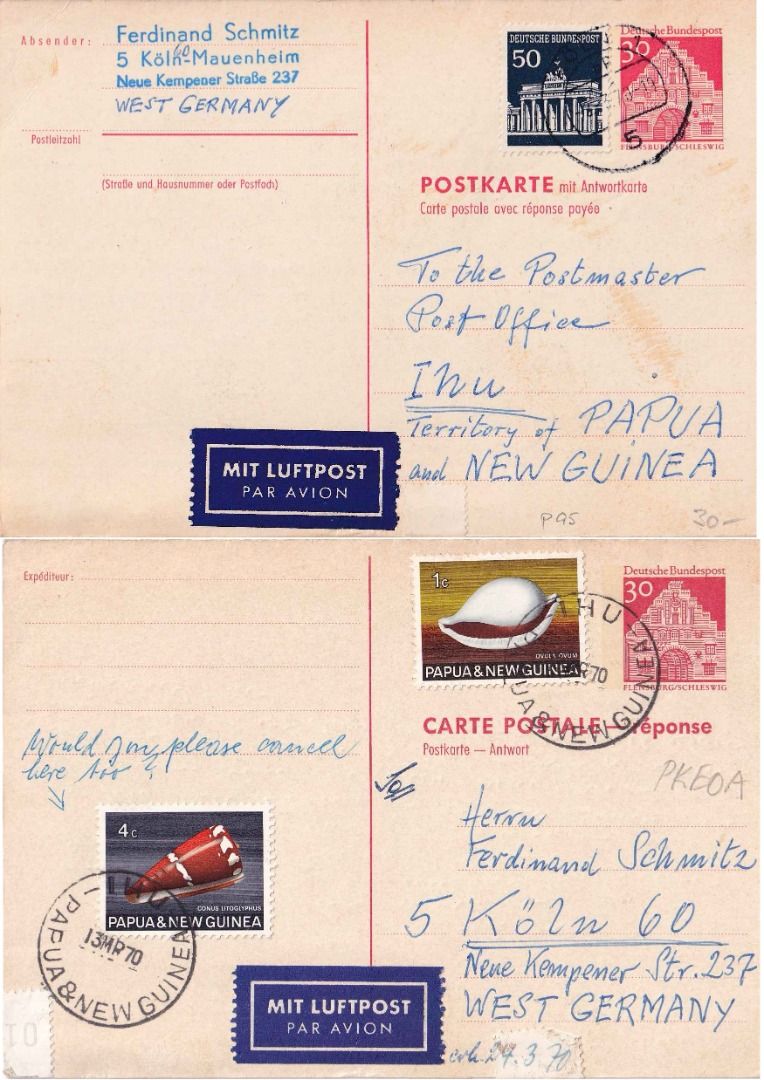 Absender:
Ferdinand Schmitz
5 Köln-Mauenheim
60
Neue Kempener Straße 237
WEST GERMANY
Postleitzahl
(Straße und Hausnummer oder Postfach)
DEUTSCHE BUNDESPOST
50
Deutsche Bundespost
30
FLENSBURG/SCHLESWIG
5
POSTKARTE mit Antwortkarte
Carte postale avec réponse payée
To the Postmaster
Post Office
Ihu
Territory of PAPUA
and NEW GUINEA
MIT LUFTPOST
PAR AVION
P 95
30-
Expéditeur:
1c
OVULA OVUM
PAPUA & NEW GUINEA
IHU
MR70
PAPUA & NEW GUINEA
Deutsche Bundespost
30
FLENSBURG/SCHLESWIG
CARTE POSTALE réponse
Postkarte — Antwort
Would you please cancel
here too?
PKEOA
4c
CONUS LITOGLYPHUS
PAPUA & NEW GUINEA
IHU
13MR70
PAPUA & NEW GUINEA
Herrn
Ferdinand Schmitz
5 Köln 60
Neue Kempener Str. 237
WEST GERMANY
MIT LUFTPOST
PAR AVION
erh. 24.3.70
01